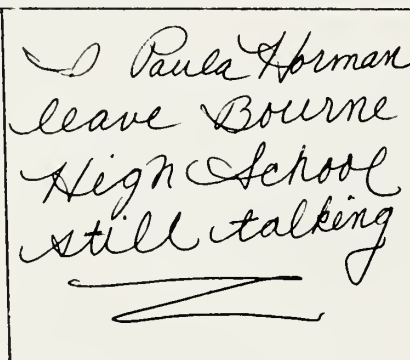 I Paula Horman
leave Bourne
High School
still talking